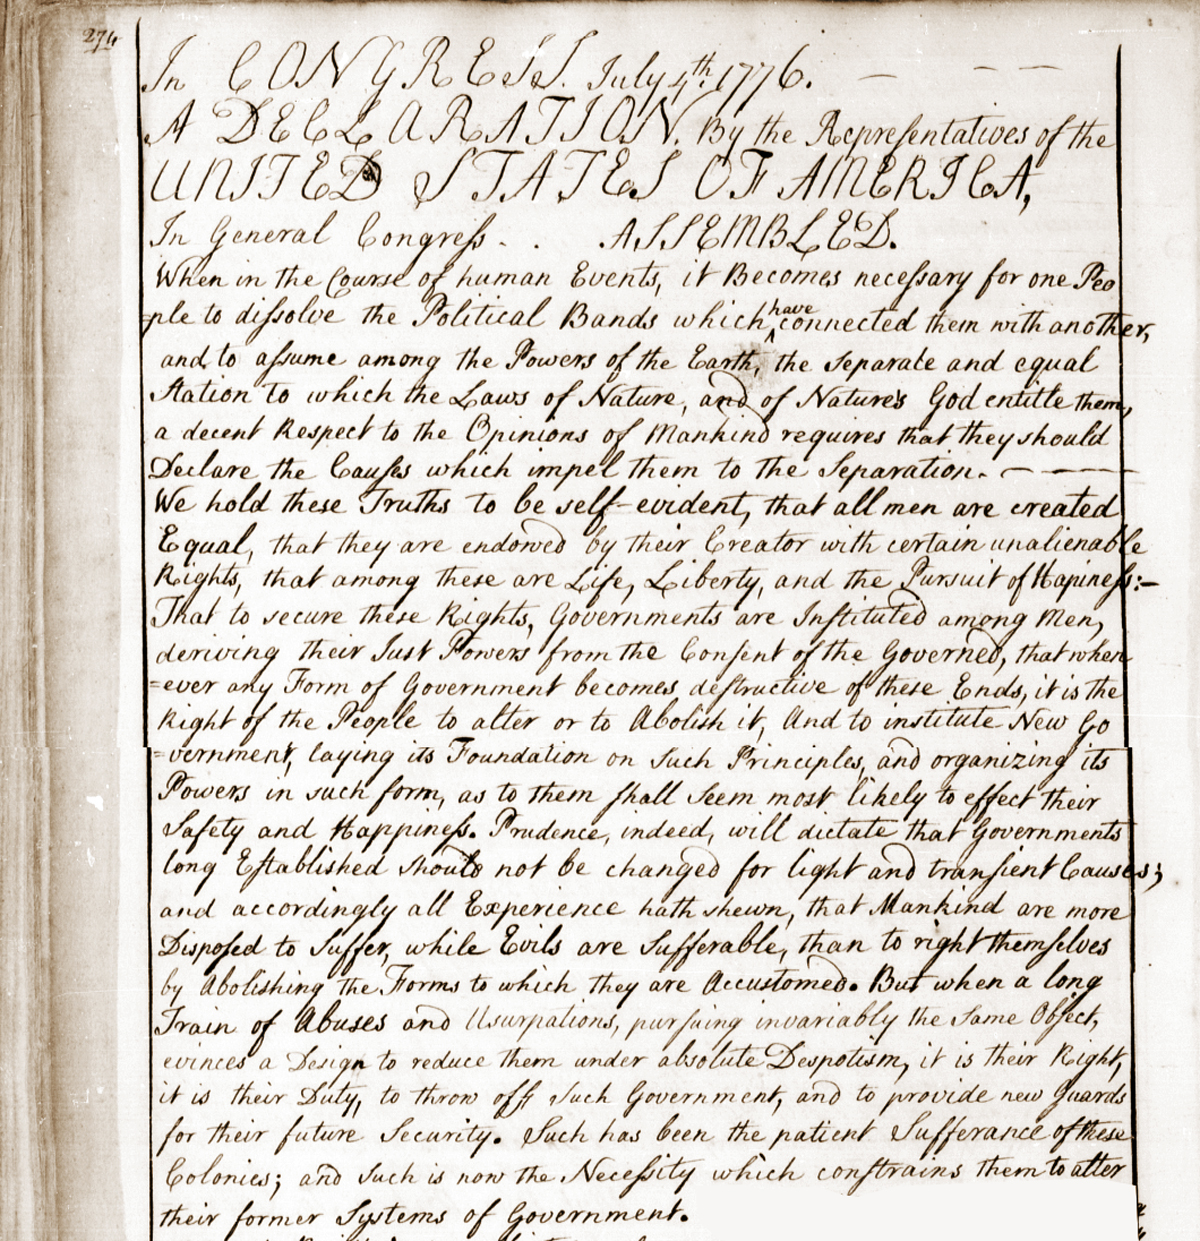 274
In CONGRESS. July 4th. 1776. — — —
A DECLARATION. By the Repreſentatives of the
UNITED STATES OF AMERICA,
In General Congreſs. . ASSEMBLED.
When in the Course of human Events, it Becomes neceſsary for one Peo
=ple to diſsolve the Political Bands which have connected them with another,
and to aſsume among the Powers of the Earth, the Separate and equal
Station to which the Laws of Nature, and of Nature's God entitle them,
a decent Respect to the Opinions of Mankind requires that they should
Declare the Cauſes which impel them to the Separation. — ———
We hold these Truths to be self-evident, that all men are created
Equal, that they are endowed by their Creator with certain unalienable
Rights, that among these are Life, Liberty, and the Pursuit of Hapineſs:—
That to secure these Rights, Governments are Inſtituted among Men,
deriving their Just Powers from the Conſent of the Governed, that when
=ever any Form of Government becomes deſtructive of these Ends, it is the
Right of the People to alter or to Abolish it, And to institute New Go
=vernment, laying its Foundation on Such Principles, and organizing its
Powers in such form, as to them ſhall Seem most likely to effect their
Safety and Happineſs. Prudence, indeed, will dictate that Governments
long Eſtablished should not be changed for light and tranſient Causes;
and accordingly all Experience hath shewn, that Mankind are more
Disposed to Suffer, while Evils are Sufferable, than to right themſelves
by Abolishing the Forms to which they are Accustomed. But when a long
Train of Abuses and Usurpations, purſuing invariably the Same Object,
evinces a Design to reduce them under absolute Despotism, it is their Right,
it is their Duty, to throw off Such Government, and to provide new Guards
for their future Security. Such has been the patient Sufferance of these
Colonies; and Such is now the Neceſsity which conſtrains them to alter
their former Systems of Government.